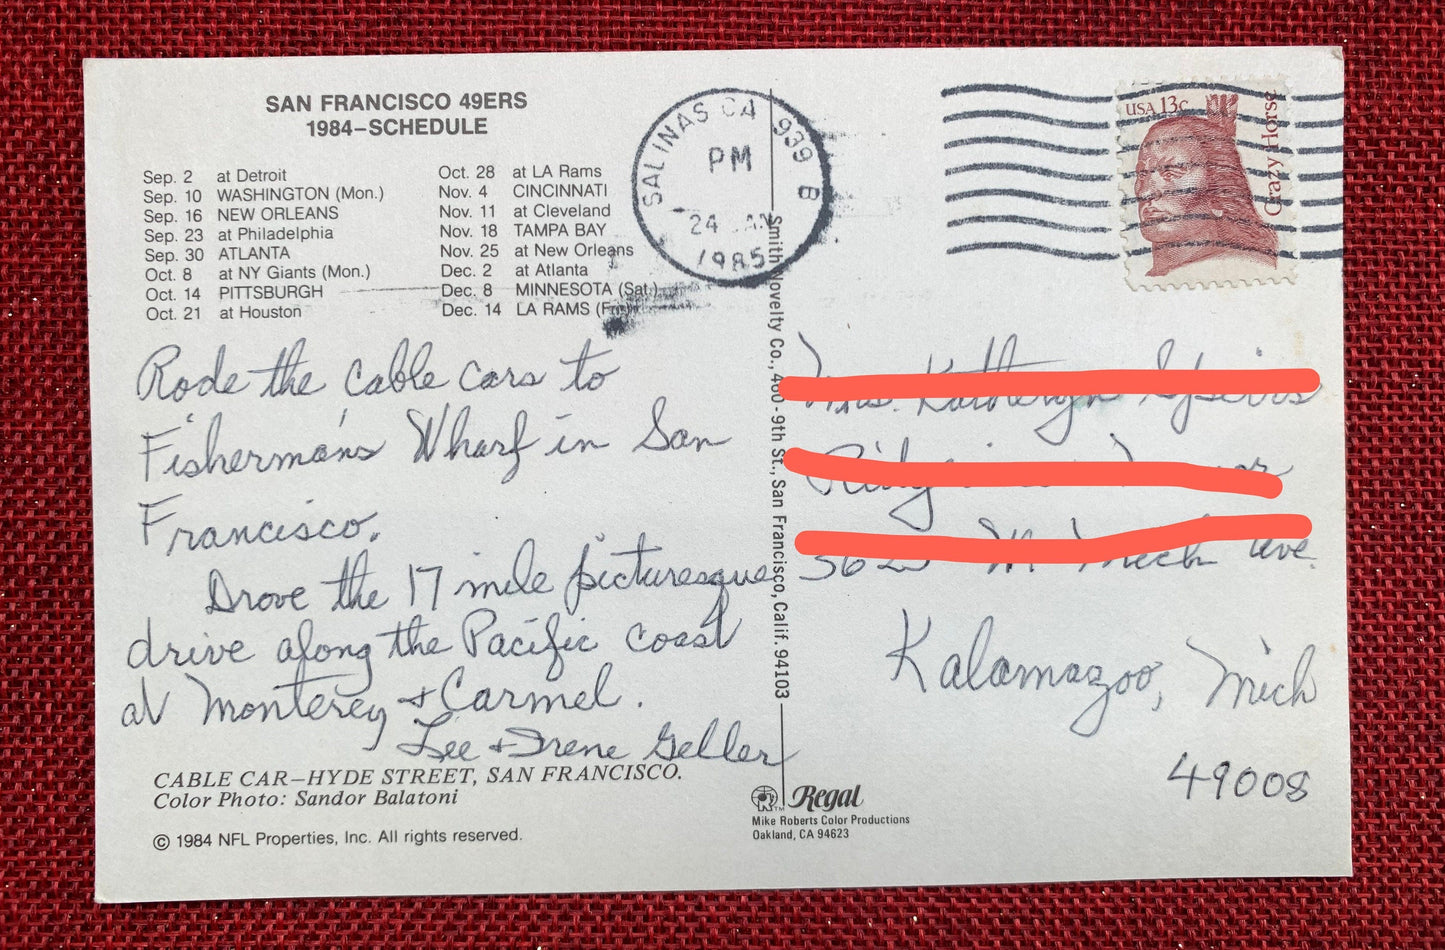 SAN FRANCISCO 49ERS
1984–SCHEDULE
Sep. 2 at Detroit
Sep. 10 WASHINGTON (Mon.)
Sep. 16 NEW ORLEANS
Sep. 23 at Philadelphia
Sep. 30 ATLANTA
Oct. 8 at NY Giants (Mon.)
Oct. 14 PITTSBURGH
Oct. 21 at Houston
Oct. 28 at LA Rams
Nov. 4 CINCINNATI
Nov. 11 at Cleveland
Nov. 18 TAMPA BAY
Nov. 25 at New Orleans
Dec. 2 at Atlanta
Dec. 8 MINNESOTA (Sat.)
Dec. 14 LA RAMS (Fri.)
SALINAS CA 939 B
PM
24 JAN
1985
USA 13c
Crazy Horse
Rode the cable cars to
Fisherman's Wharf in San
Francisco.
Drove the 17 mile picturesque
drive along the Pacific coast
at Monterey + Carmel.
Lee + Irene Geller
CABLE CAR–HYDE STREET, SAN FRANCISCO.
Color Photo: Sandor Balatoni
© 1984 NFL Properties, Inc. All rights reserved.
Smith Novelty Co., 460 - 9th St., San Francisco, Calif. 94103
ave.
Kalamazoo, Mich
49008
Regal
Mike Roberts Color Productions
Oakland, CA 94623